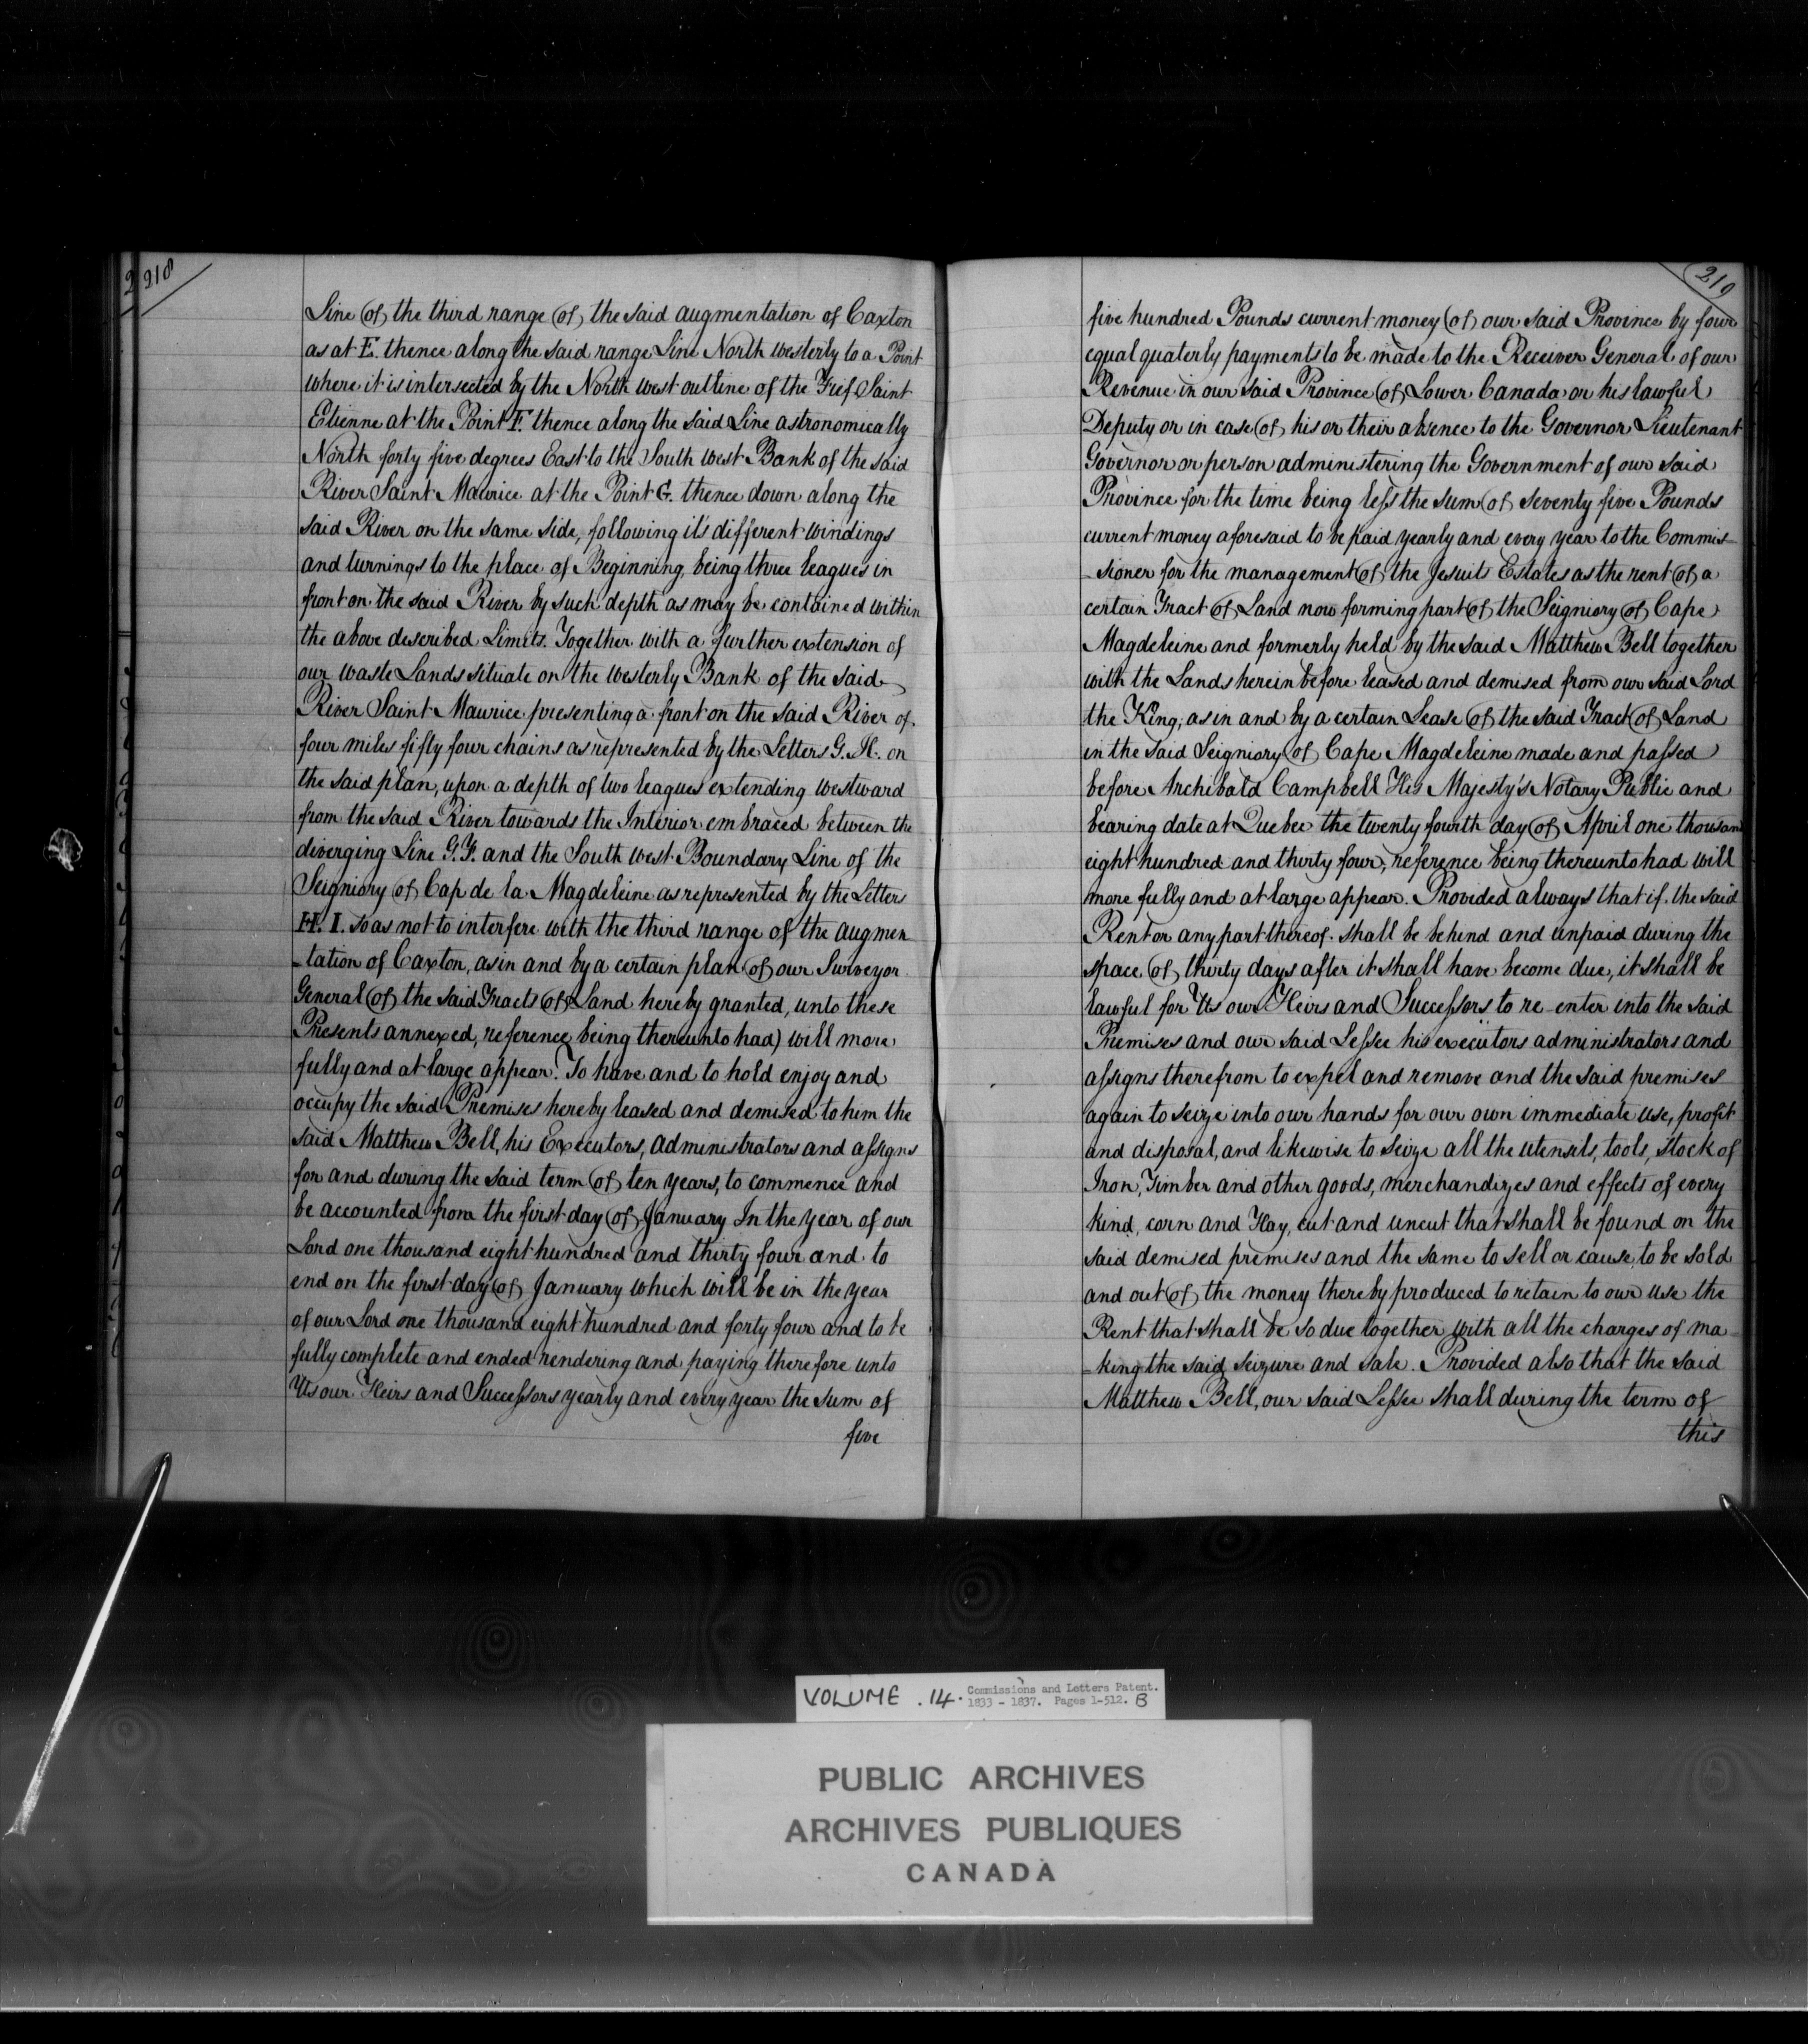 218
Line of the third range of the said augmentation of Caxton
as at E. thence along the said range Line North Westerly to a Point
where it is intersected by the North west outline of the Fief Saint
Etienne at the Point F. thence along the said Line astronomically
North forty five degrees East to the South West Bank of the said
River Saint Maurice at the Point G. thence down along the
said River on the same side, following it's different windings
and turnings to the place of Beginning, being three leagues in
front on the said River by such depth as may be contained within
the above described Limits. Together with a further extension of
our waste Lands situate on the Westerly Bank of the said
River Saint Maurice presenting a front on the said River of
four miles fifty four chains as represented by the Letters G. H. on
the said plan, upon a depth of two leagues extending Westward
from the said River towards the Interior embraced between the
diverging Line G. Y. and the South West Boundary Line of the
Seigniory of Cap de la Magdeleine as represented by the Letters
H. I. so as not to interfere with the third range of the augmen
-tation of Caxton, as in and by a certain plan of our Surveyor
General of the said Tracts of Land hereby granted, unto these
Presents annexed, reference being thereunto had) will more
fully and at large appear. To have and to hold enjoy and
occupy the said Premises hereby leased and demised to him the
said Matthew Bell, his Executors, administrators and assigns
for and during the said term of ten years, to commence and
be accounted from the first day of January In the year of our
Lord one thousand eight hundred and thirty four and to
end on the first day of January which will be in the year
of our Lord one thousand eight hundred and forty four and to be
fully complete and ended rendering and paying therefore unto
Us our Heirs and Successors yearly and every year the sum of
five
219
five hundred Pounds current money of our said Province by four
equal quaterly payments to be made to the Receiver General of our
Revenue in our said Province of Lower Canada or his lawful
Deputy or in case of his or their absence to the Governor Lieutenant
Governor or person administering the Government of our said
Province for the time being less the sum of seventy five Pounds
current money aforesaid to be paid yearly and every year to the Commis-
-sioner for the management of the Jesuits Estates as the rent of a
certain Tract of Land now forming part of the Seigniory of Cape
Magdeleine and formerly held by the said Matthew Bell together
with the Lands herein before leased and demised from our said Lord
the King, as in and by a certain Lease of the said Tract of Land
in the said Seigniory of Cape Magdeleine made and passed
before Archibald Campbell His Majesty's Notary Public and
bearing date at Quebec the twenty fourth day of April one thousand
eight hundred and thirty four, reference being thereunto had will
more fully and at large appear. Provided always that if the said
Rent or any part thereof shall be behind and unpaid during the
space of thirty days after it shall have become due, it shall be
lawful for Us our Heirs and Successors to re-enter into the said
Premises and our said Lessee his executors administrators and
assigns therefrom to expel and remove and the said premises
again to seize into our hands for our own immediate use, profit
and disposal, and likewise to seize all the utensils, tools, stock of
Iron, Timber and other goods, merchandizes and effects of every
kind, corn and Hay, cut and uncut that shall be found on the
said demised premises and the same to sell or cause to be sold
and out of the money thereby produced to retain to our use the
Rent that shall be so due together with all the charges of ma-
-king the said seizure and sale. Provided also that the said
Matthew Bell, our said Lessee shall during the term of
this
VOLUME .14. Commissions and Letters Patent.
1833 - 1837. Pages 1-512. B
PUBLIC ARCHIVES
ARCHIVES PUBLIQUES
CANADA